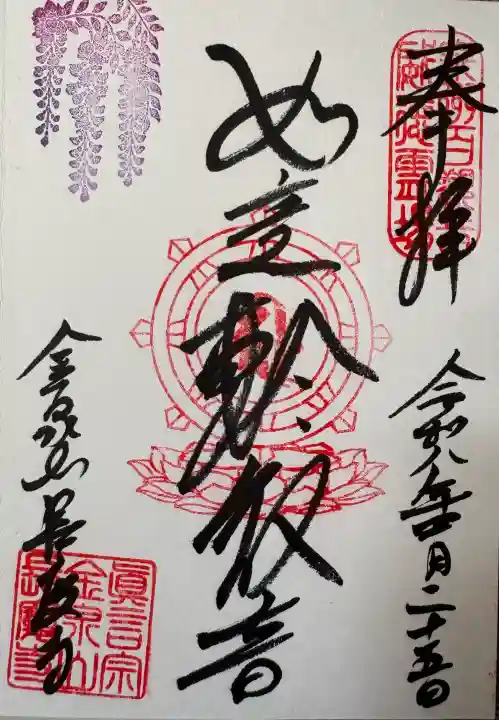 奉拝
令和八年四月二十五日
如意輪観音
金泉山長慶寺
眞言宗
金泉山
長慶寺